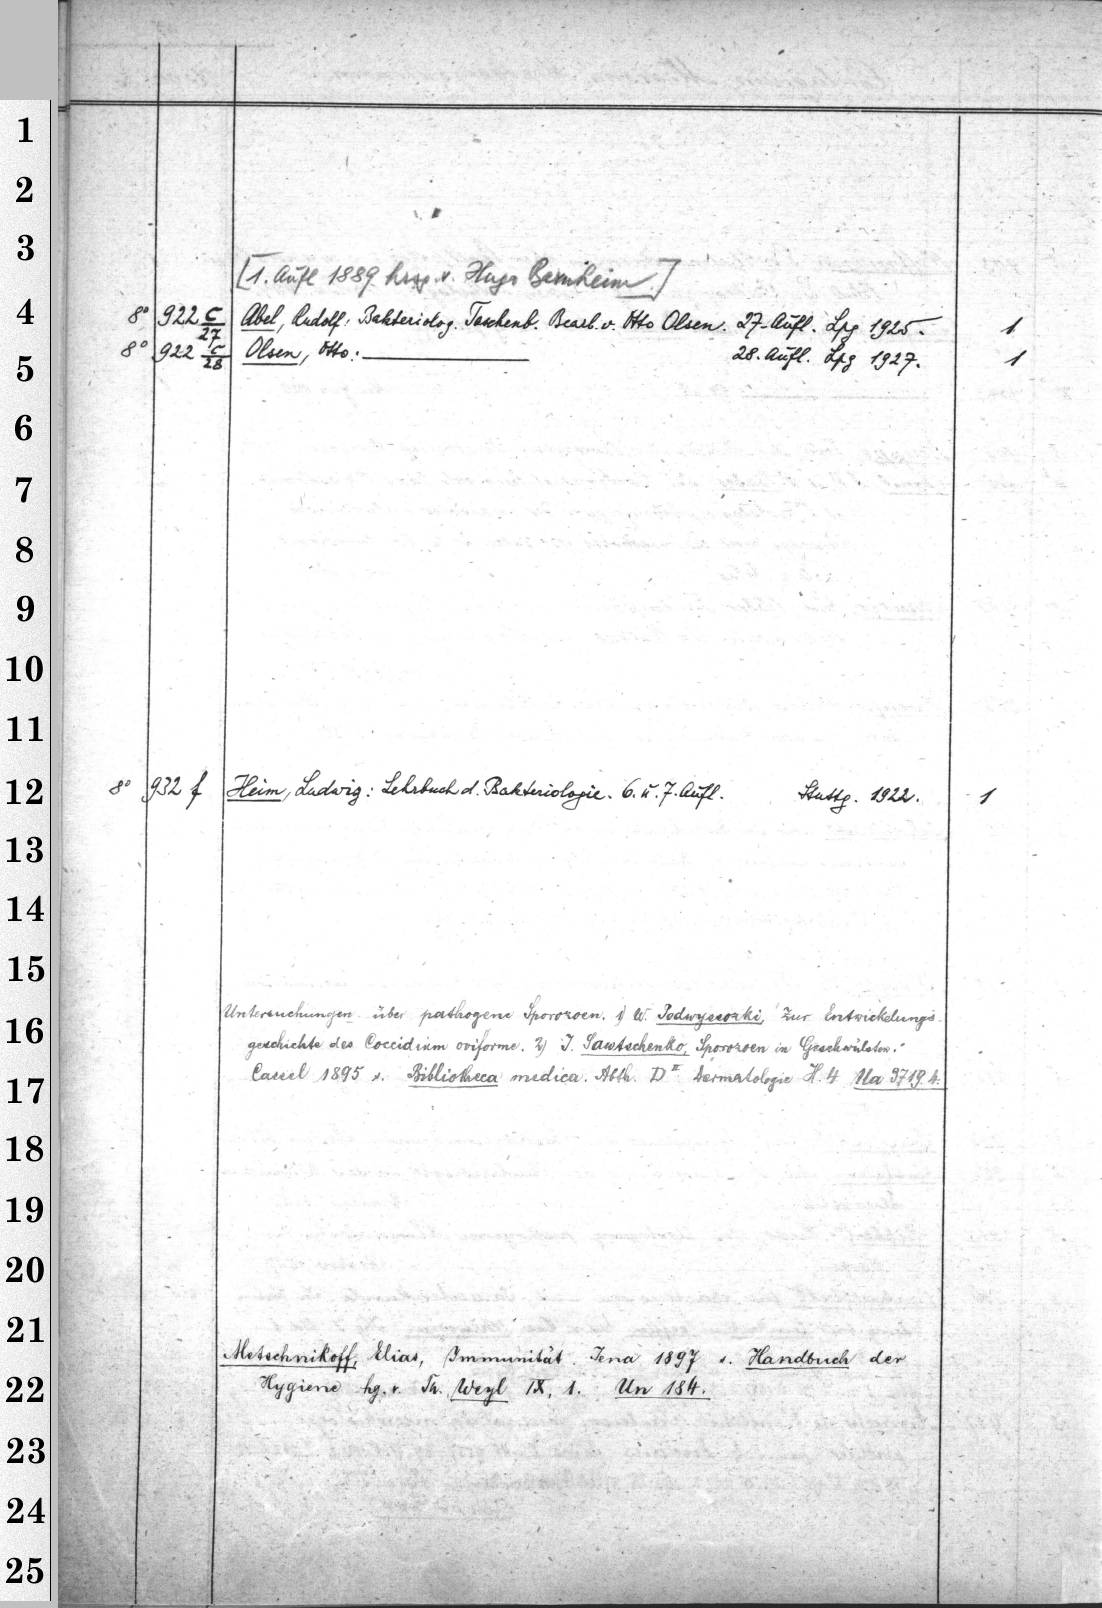 1
2
3
[1. Aufl 1889 hrsg. v. Hugo Bernheim.]
4 8° 922 c/27 Abel, Rudolf: Bakteriolog. Taschenb. Bearb. v. Otto Olsen. 27. Aufl. Lpg 1925. 1
5 8° 922 c/28 Olsen, Otto: ———— 28. Aufl. Lpg 1927. 1
6
7
8
9
10
11
12 8° 932 f Heim, Ludwig: Lehrbuch d. Bakteriologie. 6. u. 7. Aufl. Stuttg. 1922. 1
13
14
15
Untersuchungen über pathogene Sporozoen. 1) W. Podwyssozki, Zur Entwickelungs-
16 geschichte des Coccidium oviforme. 2) J. Sawtschenko, Sporozoen in Geschwülsten.
17 Cassel 1895 s. Bibliotheca medica. Abth. D II Dermatologie H. 4 Ua 3719. 4.
18
19
20
21 Metschnikoff, Elias, Immunität. Jena 1897 s. Handbuch der
22 Hygiene hg. v. Th. Weyl IX, 1. Un 184.
23
24
25